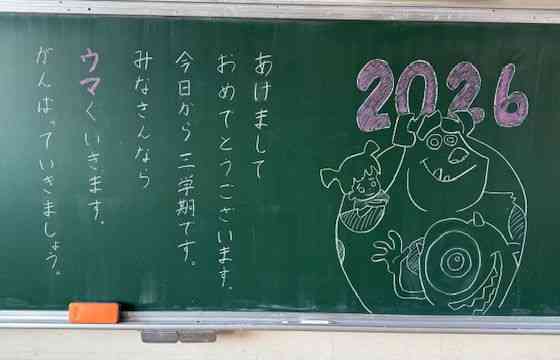 あけまして
おめでとうございます。
今日から三学期です。
みなさんなら
ウマくいきます。
がんばっていきましょう。
2026